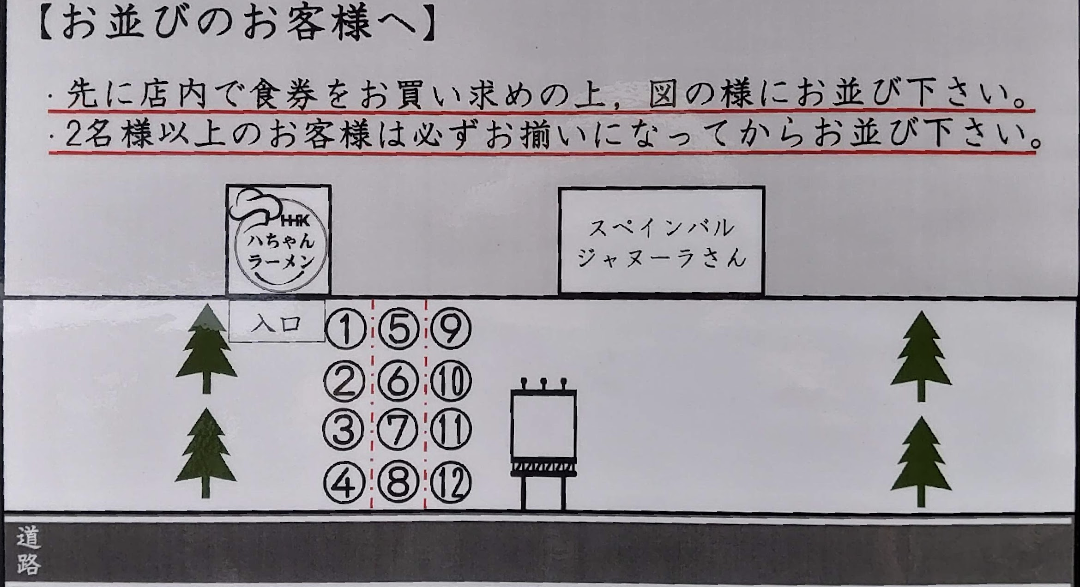 【お並びのお客様へ】
・先に店内で食券をお買い求めの上，図の様にお並び下さい。
・2名様以上のお客様は必ずお揃いになってからお並び下さい。
HHK
ハちゃん
ラーメン
スペインバル
ジャヌーラさん
入口
① ⑤ ⑨
② ⑥ ⑩
③ ⑦ ⑪
④ ⑧ ⑫
道路